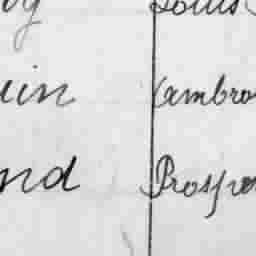 oy Louis
uin Cambro
nd Prosper